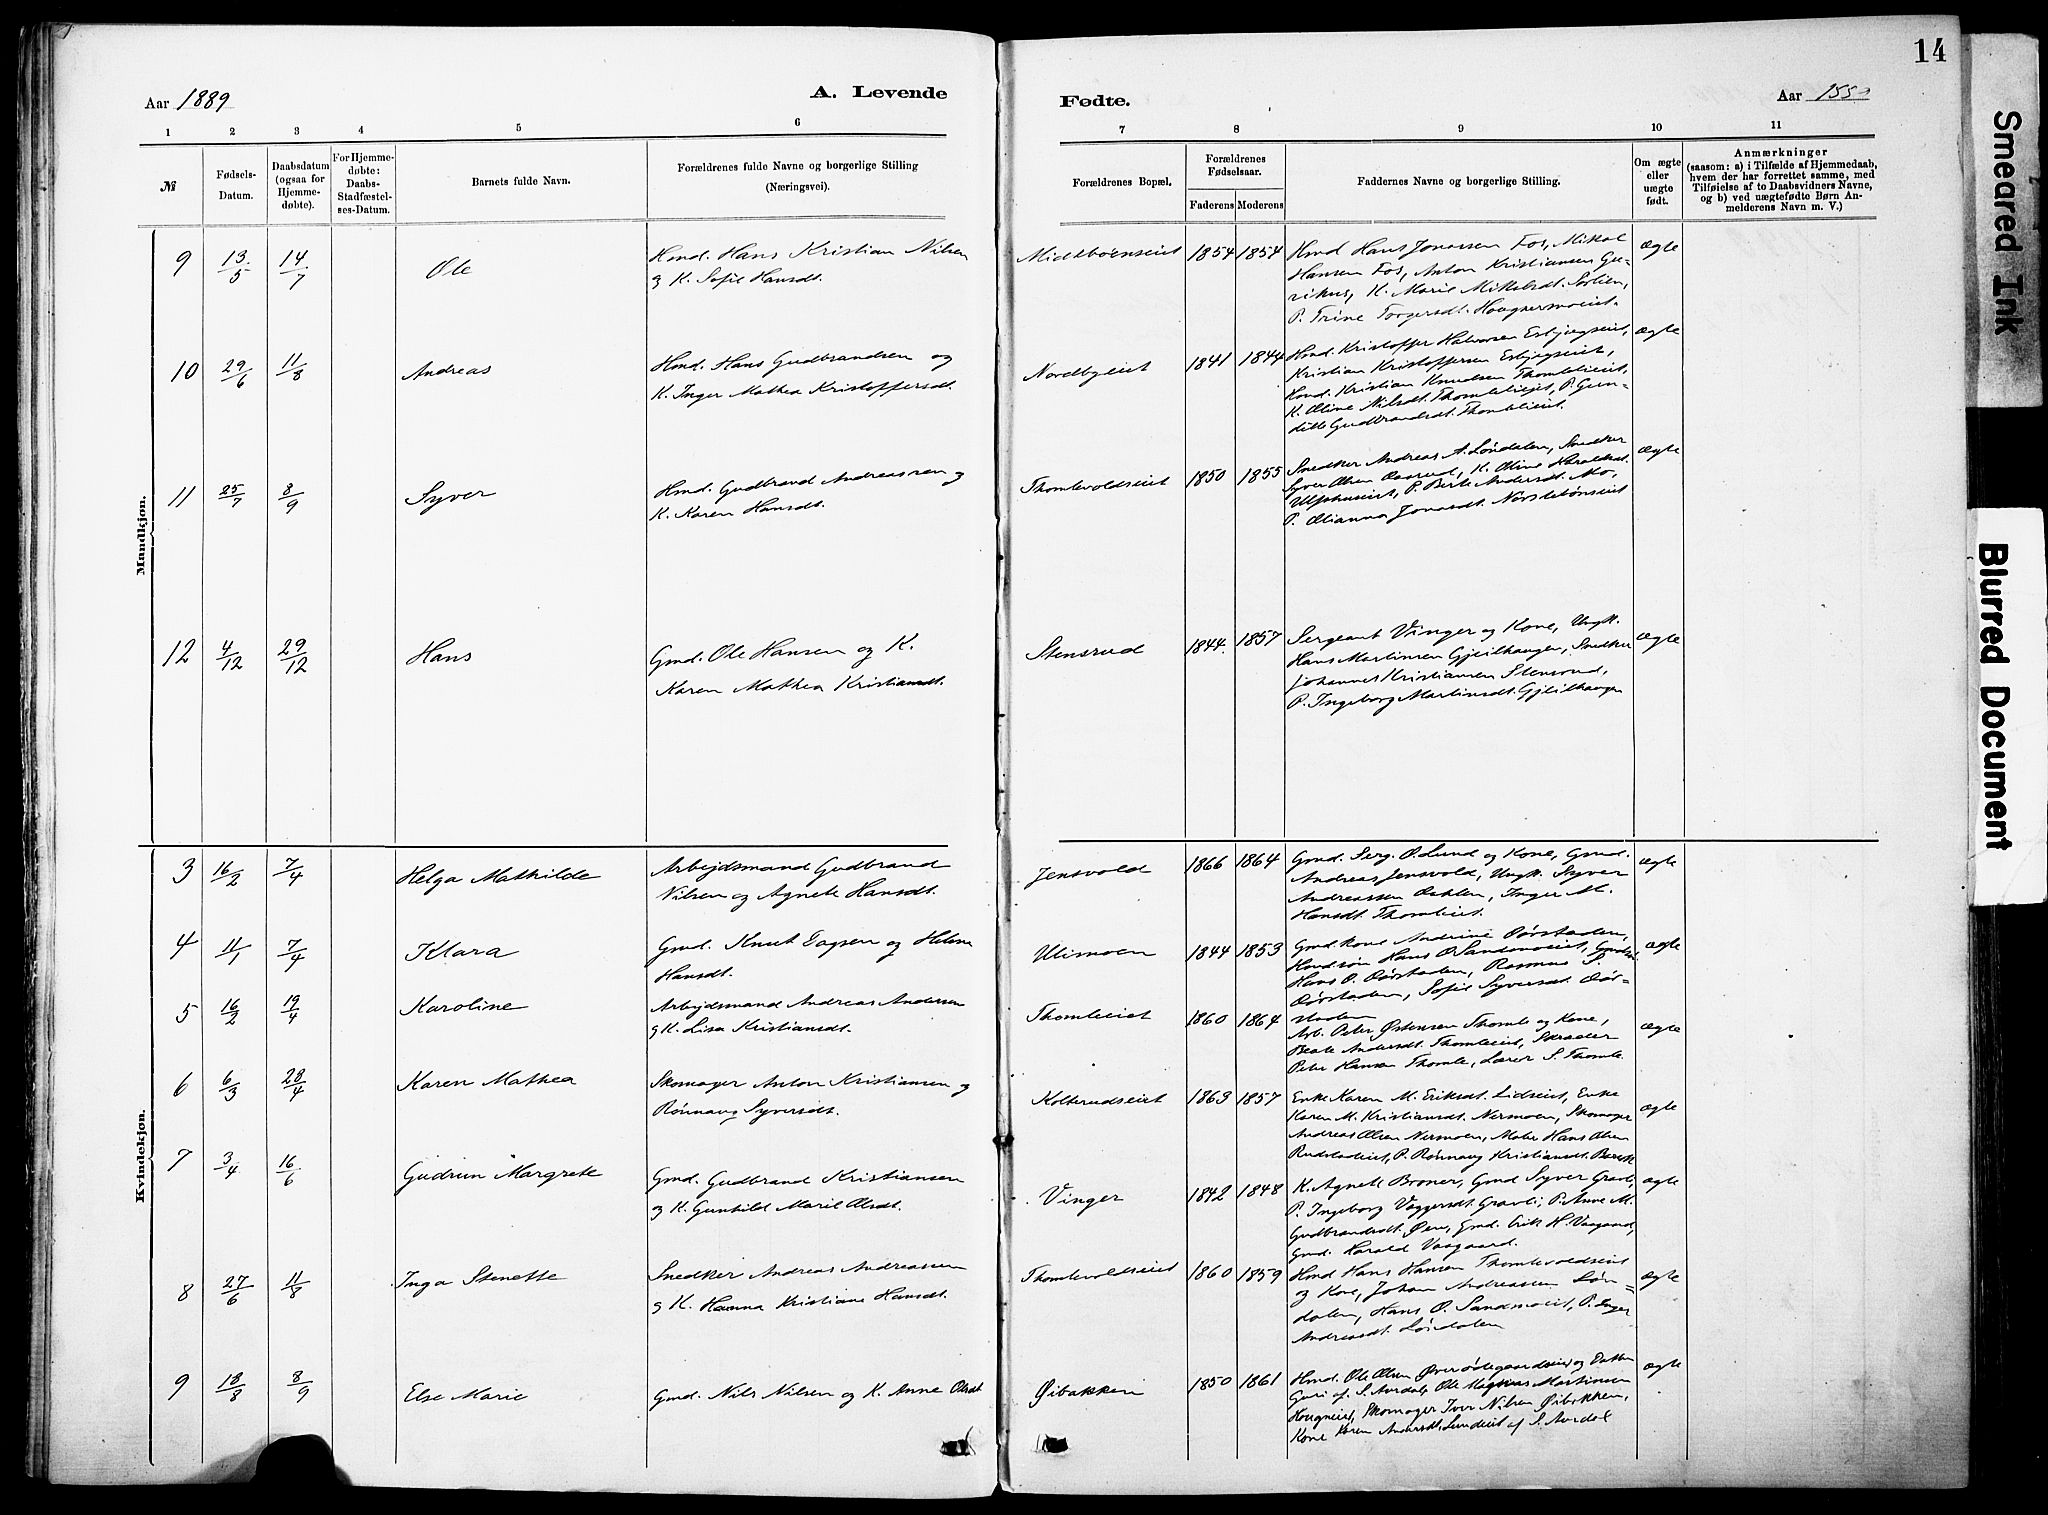 14
Aar 1889
A. Levende
Fødte.
Aar
1 2 3 4 5 6 7 8 9 10 11
№
Fødsels-
Datum.
Daabsdatum
(ogsaa for
Hjemme-
døbte).
For Hjemme-
døbte:
Daabs-
Stadfæstel-
ses-Datum.
Barnets fulde Navn.
Forældrenes fulde Navne og borgerlige Stilling
(Næringsvei).
Forældrenes Bopæl.
Forældrenes
Fødselsaar.
Faderens Moderens
Faddernes Navne og borgerlige Stilling.
Om ægte
eller
uægte
født.
Anmærkninger
(saasom: a) i Tilfælde af Hjemmedaab,
hvem der har forrettet samme, med
Tilføielse af to Daabsvidners Navne,
og b) ved uægtefødte Børn An-
melderens Navn m. V.)
Mandkjøn.
9 13/5 14/7 Ole
Hmd. Hans Kristian Nilsen
og K. Sofie Hansdt.
1854 1854
Hmd Hans Jonassen Fos, Mikal
Hansen Fos, Anton Kristiansen Gu-
rihus, K. Marie Mikelsdt. Sørlien,
P. Trine Torgersdt. Hougnermoeiet.
ægte
10 29/6 11/8 Andreas
Hmd. Hans Gudbrandsen og
K. Inger Mathea Kristoffersdt.
Nordbyeiet 1841 1844
Hmd. Kristoffer Halvorsen Esbjugseiet,
Kristian Kristoffersen Esbjugseiet,
Hmd. Kristian Knudsen Thomleieiet,
K. Oline Nilsdt. Thomleieiet, P. Gun-
ilde Gudbrandsdt. Thomleieiet.
ægte
11 25/7 8/9 Syver
Hmd. Gudbrand Andreassen og
K. Karen Hansdt.
Thomlevoldseiet 1850 1855
Snedker Andreas A. Løndalen, Snedker
Syver Olsen Aasrud, K. Oline Haraldsdt.
Ulfshuseiet, P. Berte Andersdt. Mo,
P. Olianna Jonasdt. Norstebønseiet
ægte
12 4/12 29/12 Hans
Gmd. Ole Hansen og K.
Karen Mathea Kristiansdt.
Stensrud 1844. 1857
Sergeant Vinger og Kone, Ungk.
Hans Martinsen Gjeilhaugen, Snedker
Johannes Kristiansen Stensrud,
P. Ingeborg Martinsdt. Gjeilhaugen
ægte
Kvindekjøn.
3 16/2 7/4 Helga Mathilde
Arbejdsmand Gudbrand
Nilsen og Agnete Hansdt.
Jensvold 1866 1864
Gmd. Serg. O. Lund og Kone, Gmd.
Andreas Jensvold, Ungk. Syver
Andreassen, Inger M.
Hansdt. Thomleiet.
ægte
4 11/1 7/4 Klara
Gmd. Knut Dagsen og Helene
Hansdt.
Ulismoen 1844 1853
Gmd. Kone Andrine Børstaden,
Hmdsøn Hans O. Sandmoeiet,
Hans P. Børstaden, Rasmus P.
Børstaden, Sofie Syversdt. Bør-
staden
ægte
5 16/2 19/4 Karoline
Arbejdsmand Andreas Andersen
og K. Lisa Kristiansdt.
Thomleeiet 1860 1864
Arb. Peter Østensen Thomle og Kone,
Beate Andersdt. Thomleeiet, Skræder
Peter Hansen Thomle, Lærer S. Thomle.
ægte
6 6/3 28/4 Karen Mathea
Skomager Anton Kristiansen og
Rønnaug Syversdt.
Kolterudseiet 1863 1857
Enke Karen M. Eriksdt. Lidseiet, Enke
Karen M. Kristiansdt. Nermoen, Skomager
Andreas Olsen Nermoen, Maler Hans Olsen
Rudstadeiet, P. Rønnaug Kristiansdt.
ægte
7 3/4 16/6 Gudrun Margrete
Gmd. Gudbrand Kristiansen
og K. Gunhild Marie Olsdt.
Vinger 1842 1848
K. Agnete Broner, Gmd Syver Gravli,
P. Ingeborg Vaggersdt. Gravli, P. Anne M.
Gudbrandsdt. Øen, Gmd. Erik H. Vaagaard,
Gmd. Harald Vaagaard.
ægte
8 27/6 11/8 Inga Stenette
Snedker Andreas Andreassen
og K. Hanna Kristiane Hansdt.
Thomlevoldseiet 1860 1859
Hmd Hans Hansen Thomlevoldseiet
og Kone, Johan Andreassen Løn-
dalen, Hans O. Sandmoeiet, P. Inger
Andreasdt. Løndalen
ægte
9 18/8 8/9 Else Marie
Gmd. Nils Nilsen og K. Anne Olsdt
Øibakken 1850 1861
Hmd. Ole Olsen Øverødegaardseiet og Datter
Guri af S. Aurdal, Ole Magnus Martinsen
Hougneiet, Skomager Iver Nilsen Øibakken,
Kone Karen Andersdt. Lundeiet af S. Aurdal
ægte
Smeared Ink
Blurred Document